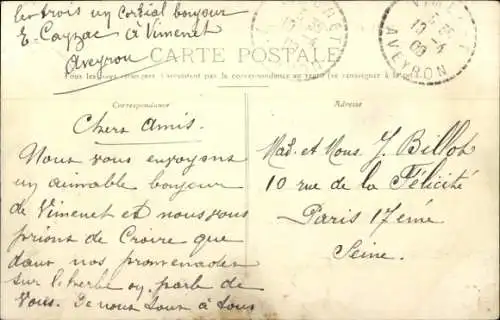 les trois un cordial bonjour
E. Cayzac à Vimenet
Aveyron
CARTE POSTALE
Tous les pays étrangers n'acceptent pas la correspondance au recto (se renseigner à la poste)
VIMENET
10 -4
AVEYRON
Correspondance
Chers Amis.
Nous vous envoyons
un aimable bonjour
de Vimenet et nous vous
prions de Croire que
dans nos promenades
sur l'herbe on parle de
Vous. De nous tous à tous
Adresse
Mad. et Mons. J. Billot
10 rue de la Félicité
Paris 17ème
Seine.